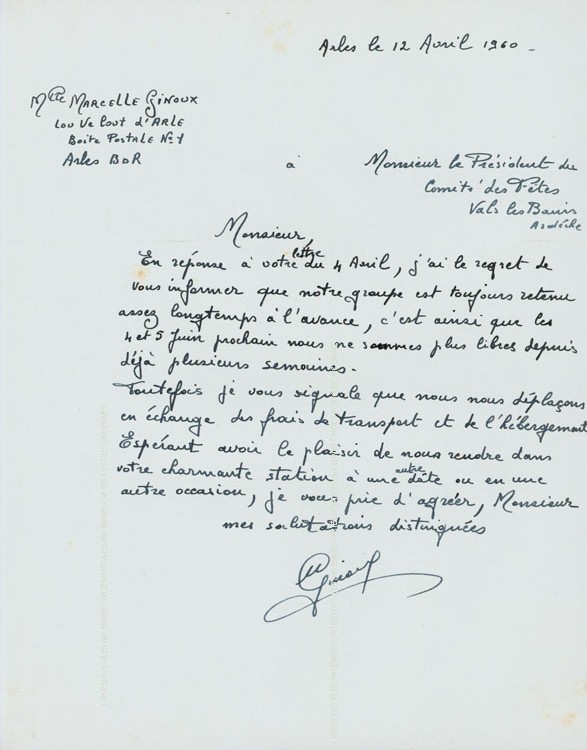 Arles le 12 Avril 1960 -
Melle MARCELLE GINOUX
Lou Velout d'ARLE
Boite Postale No 1
Arles BdR
à
Monsieur le Président du
Comité des Fêtes
Vals les Bains
Ardèche
Monsieur,
En réponse à votre lettre du 4 Avril, j'ai le regret de
vous informer que notre groupe est toujours retenu
assez longtemps à l'avance, c'est ainsi que les
4 et 5 Juin prochain nous ne sommes plus libres depuis
déjà plusieurs semaines.
Toutefois je vous signale que nous nous déplaçons
en échange des frais de transport et de l'hébergement
Espérant avoir le plaisir de nous rendre dans
votre charmante station à une autre date ou en une
autre occasion, je vous prie d'agréer, Monsieur
mes salutations distinguées
Ginoux